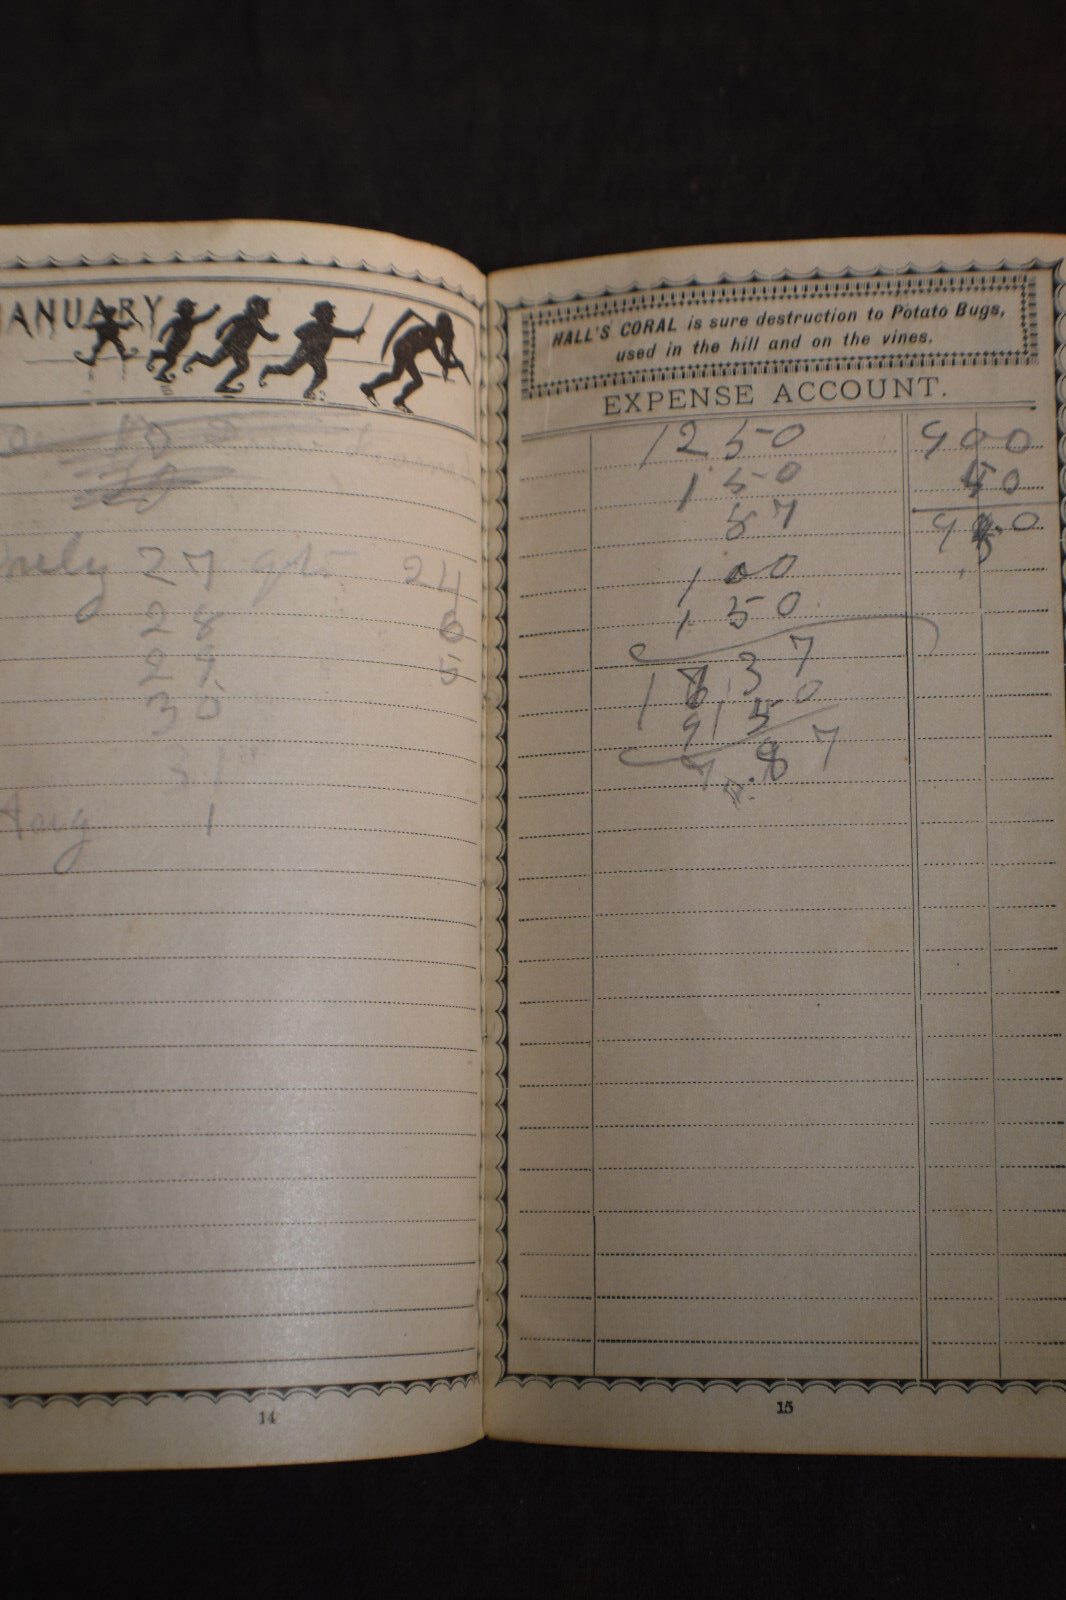 JANUARY
July 27 qts 24
28 6
29 5
30
31
Aug 1
14
HALL'S CORAL is sure destruction to Potato Bugs,
used in the hill and on the vines.
EXPENSE ACCOUNT.
1250
150
57
100
150
37
50
7
900
50
950
15